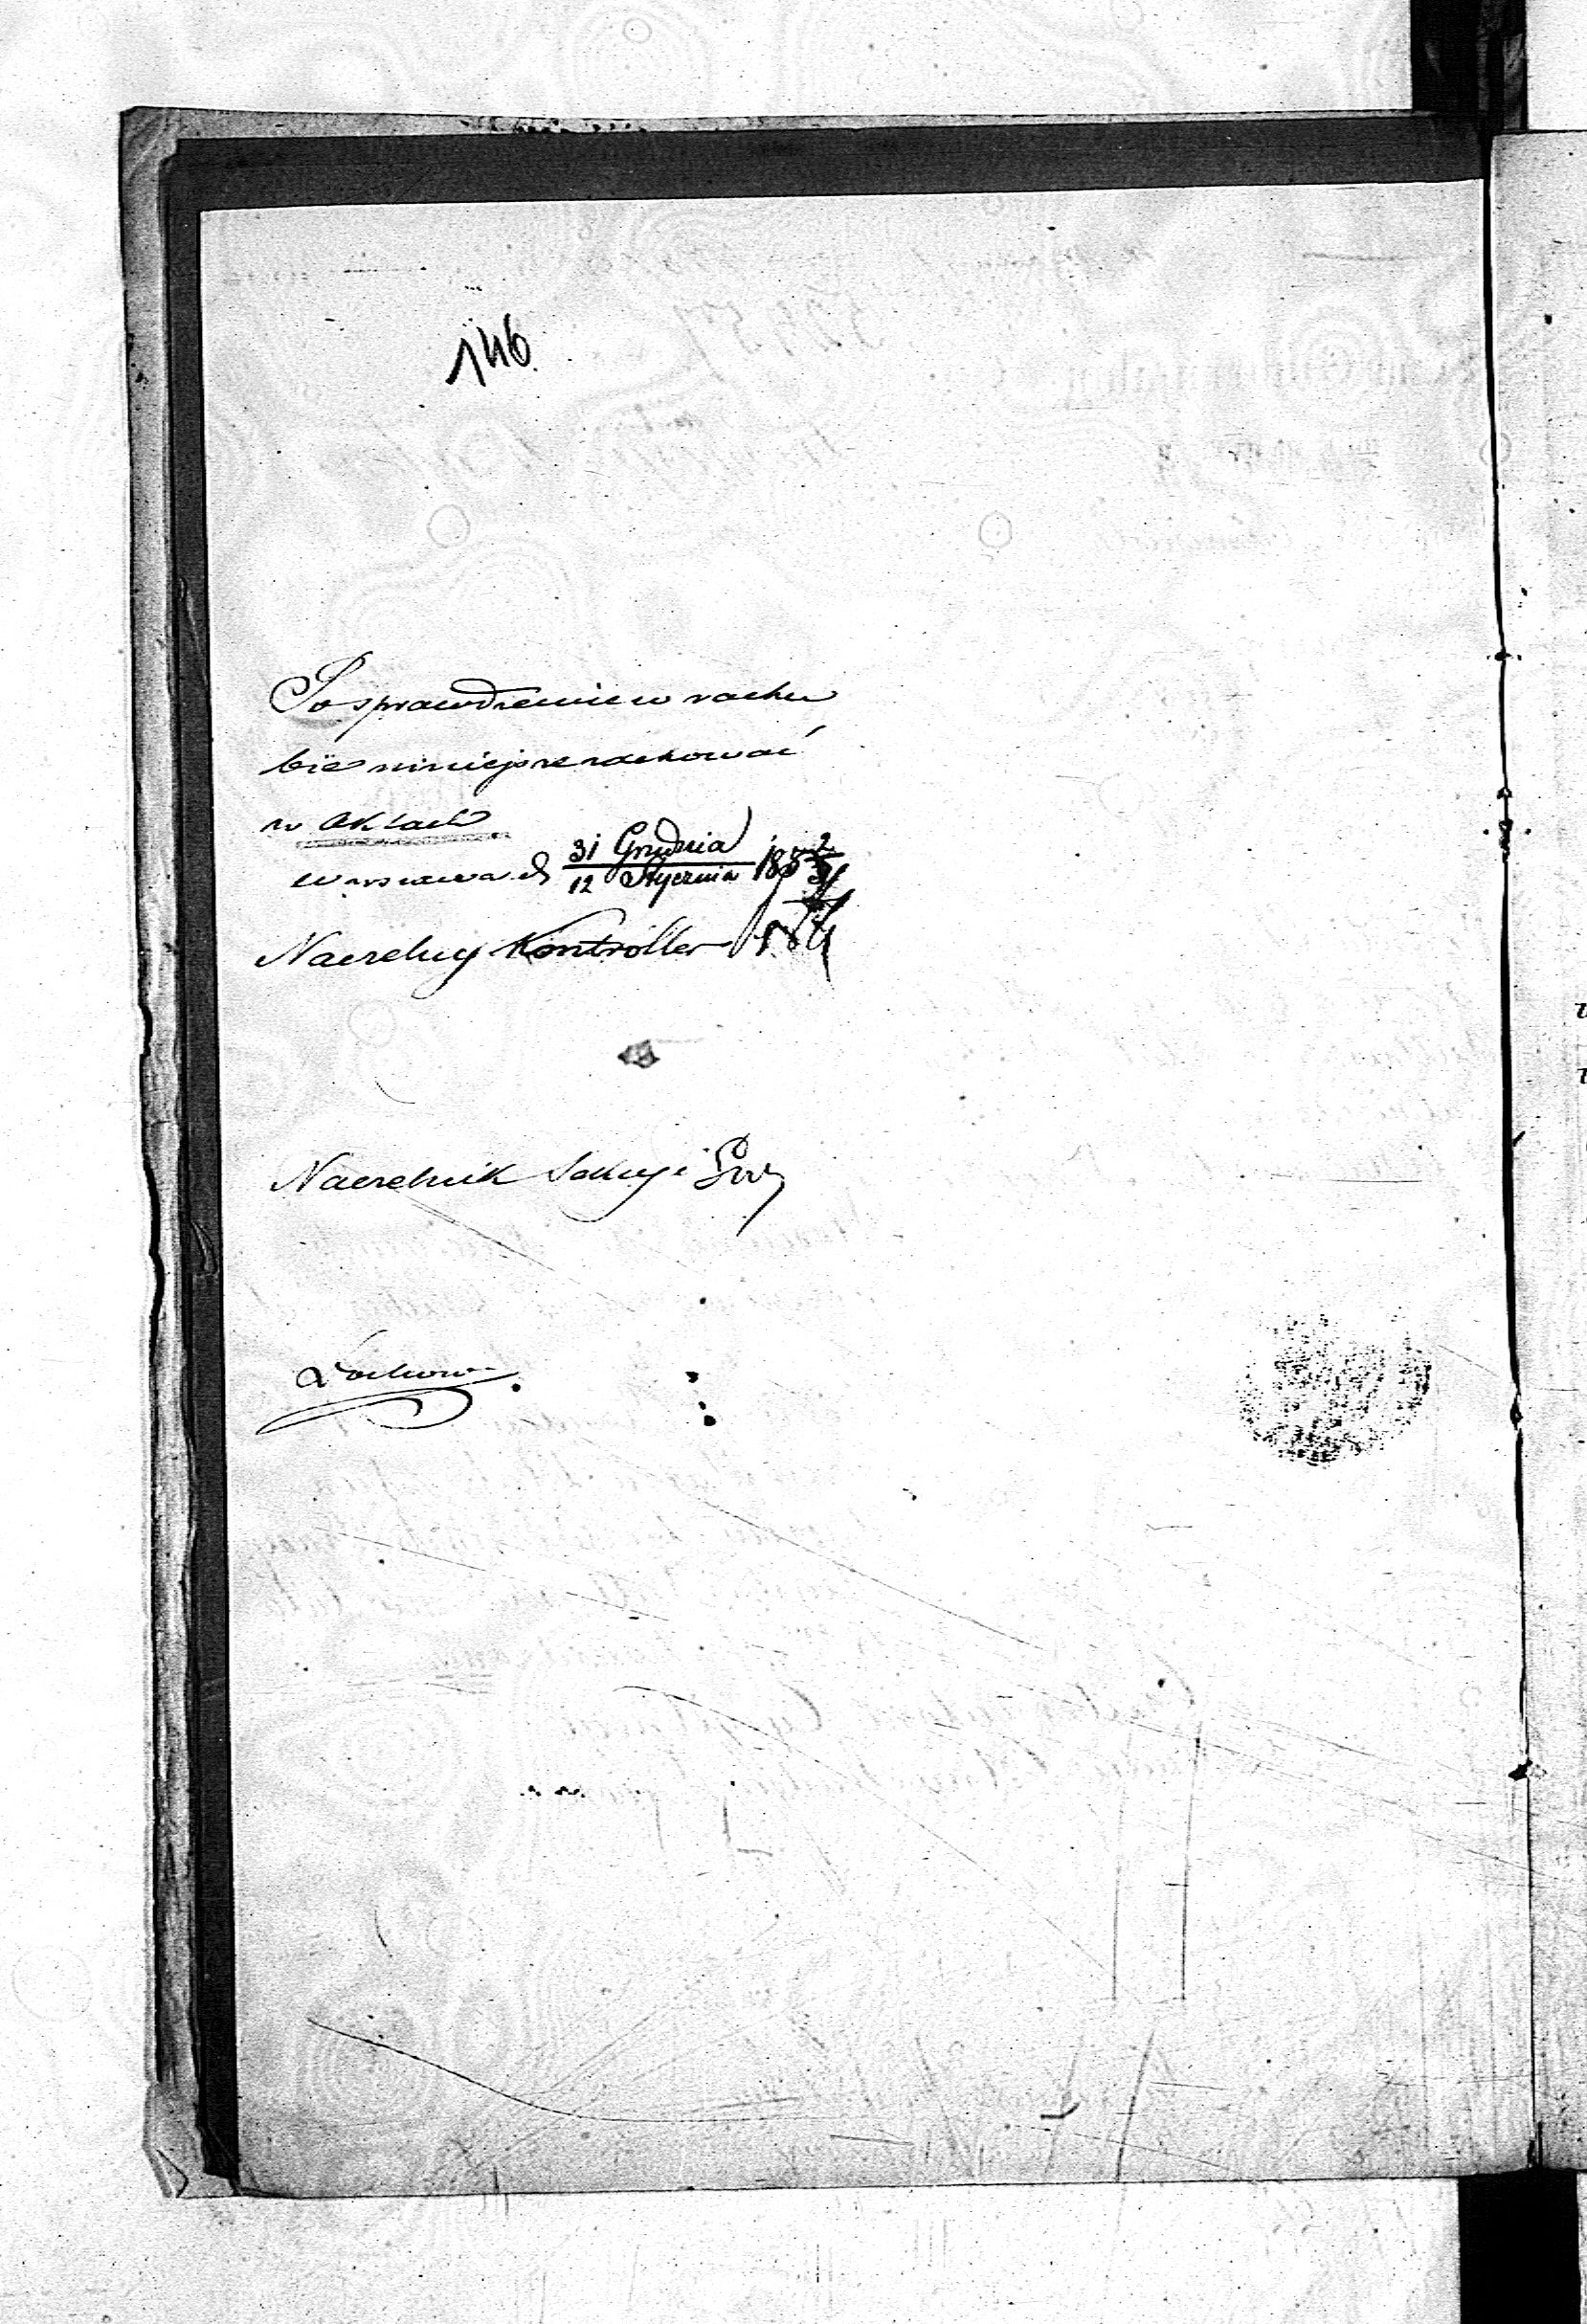 146
Po sprawdzeniu w rachu
bie niniejsze zachować
w Aktach
Warszawa d 31 Grudnia / 12 Stycznia 185 2/3
Naczelny Kontroller
Naczelnik Sekcyi